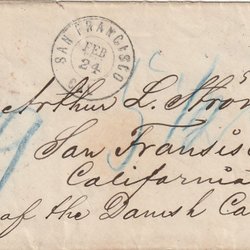 SAN FRANCISCO
FEB
24
Arthur L. Stro
San Fransis
California
of the Danish Co